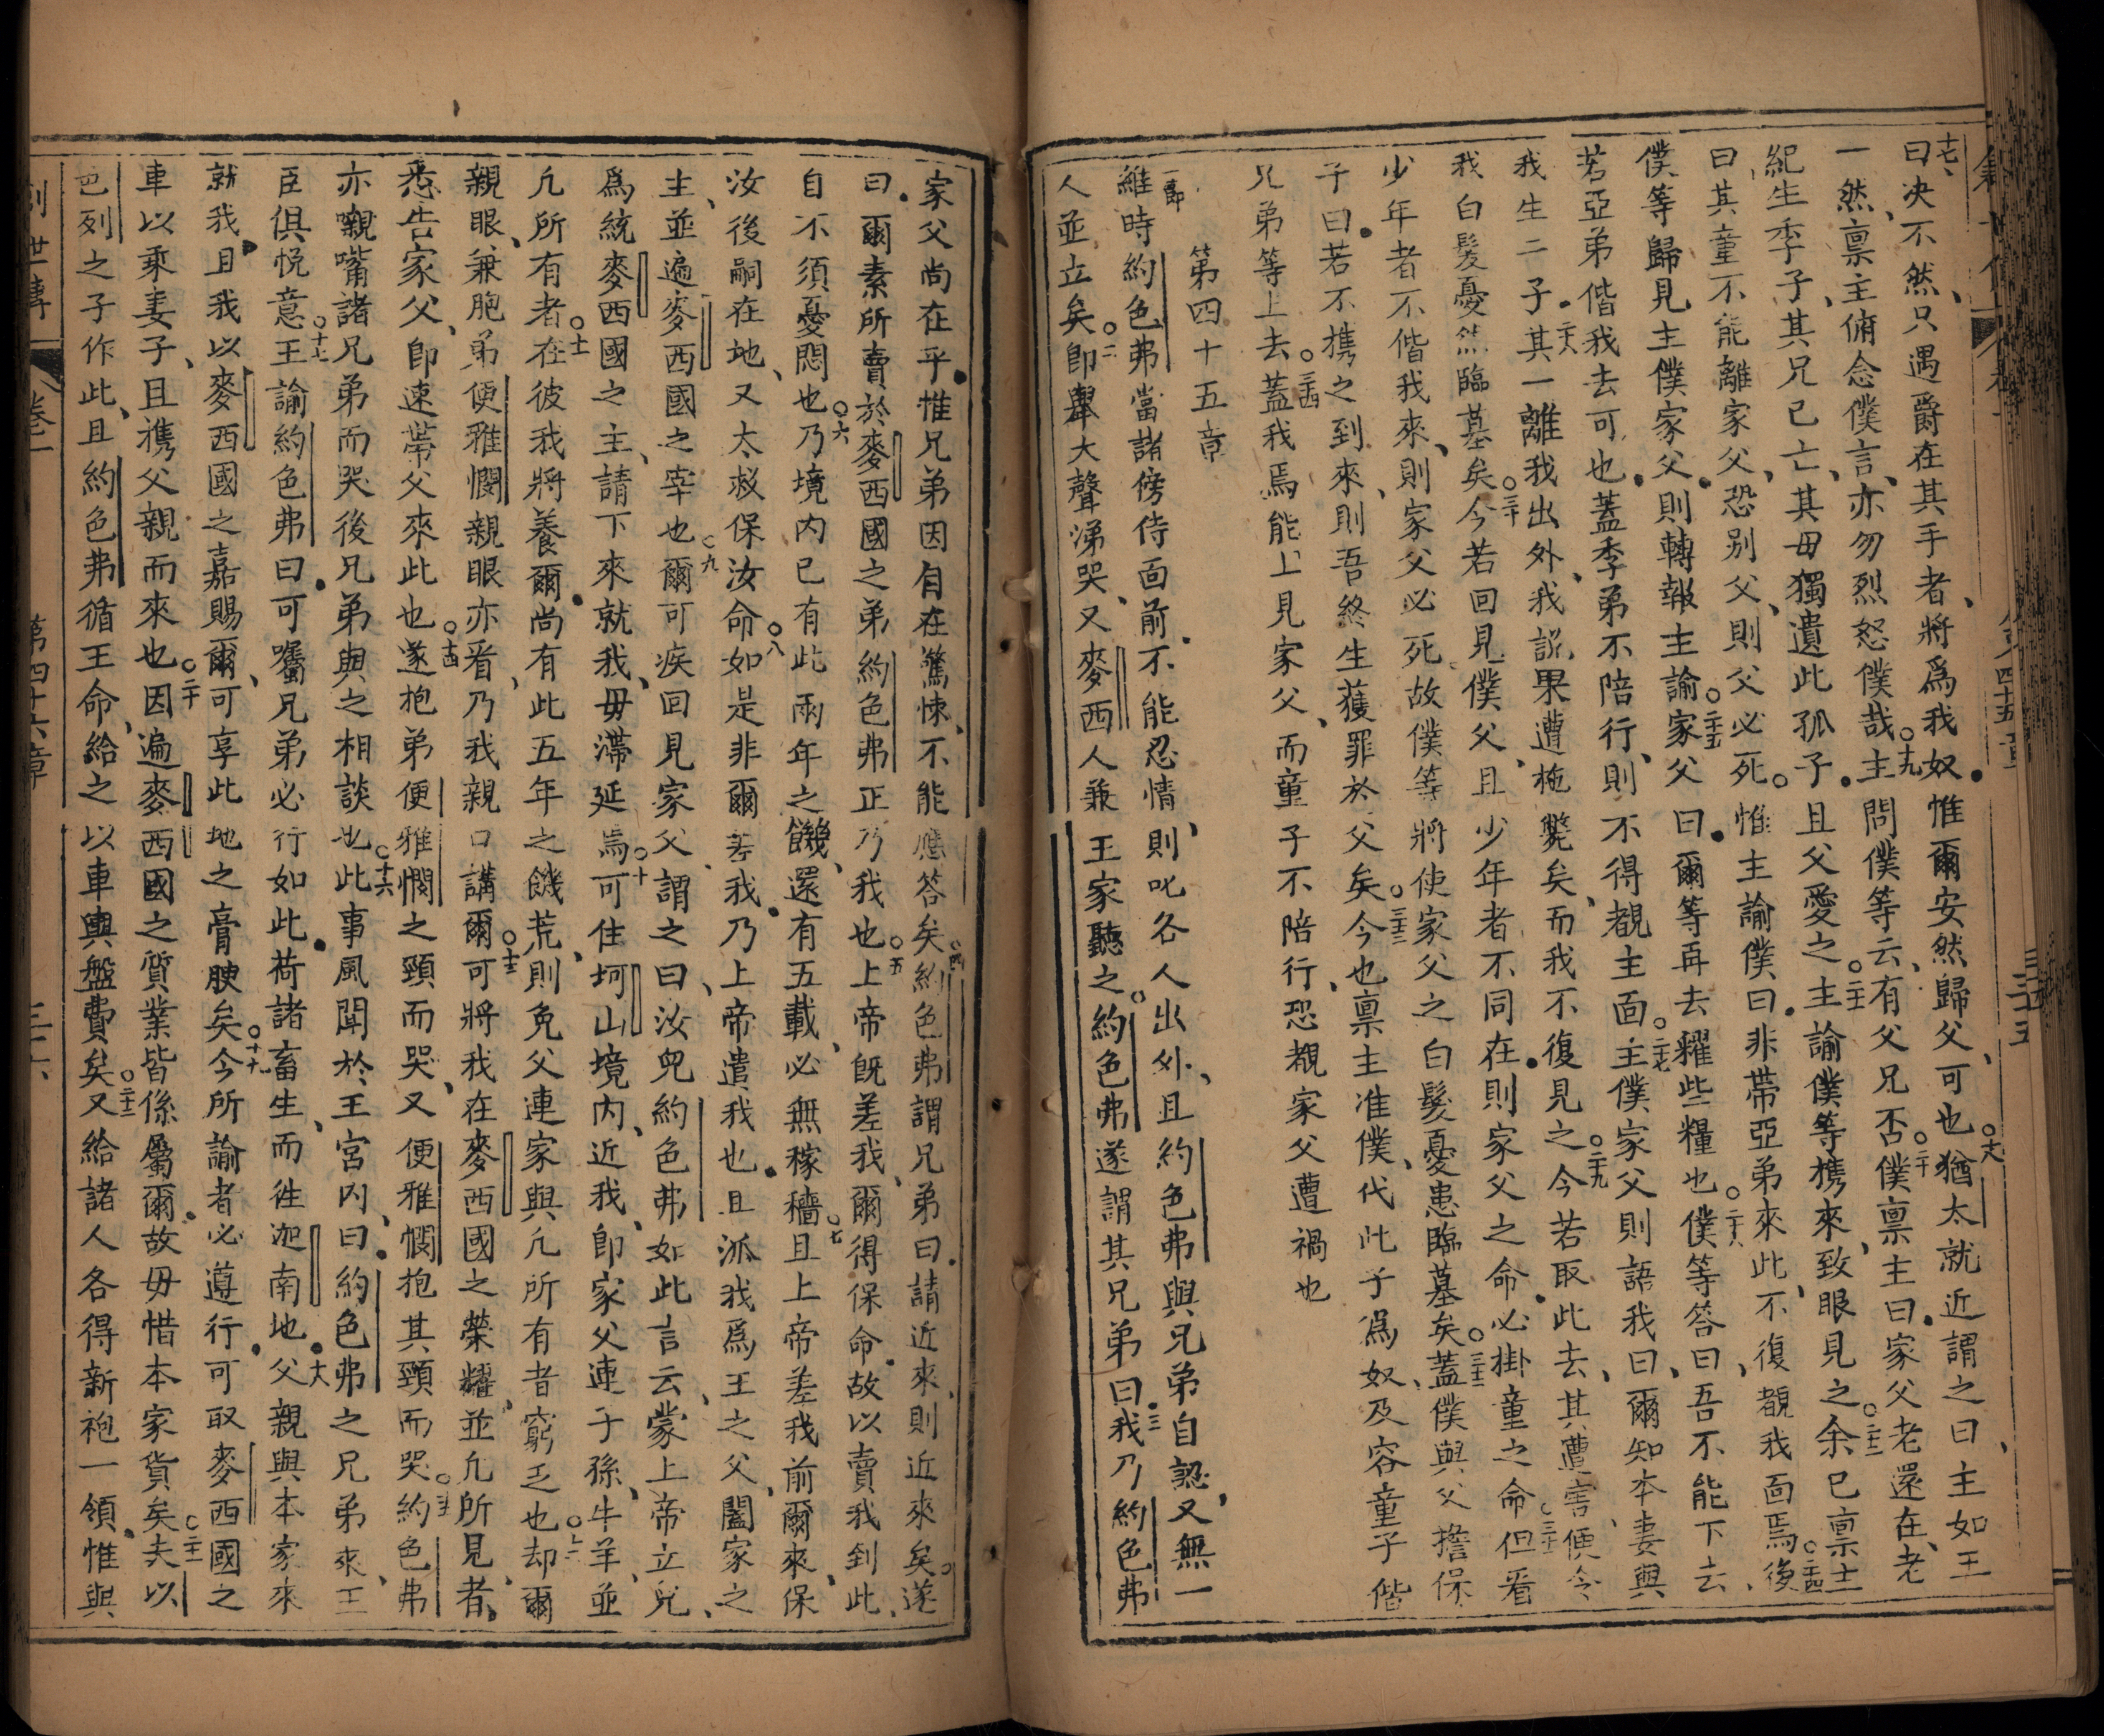 十七曰決不然只遇爵在其手者將爲我奴惟爾安然歸父可也十八猶太就近謂之曰主如王
一然禀主俯念僕言亦勿烈怒僕哉十九主問僕等云有父兄否二十僕禀主曰家父老還在老
紀生季子其兄已亡其母獨遺此孤子且父愛之二十一主諭僕等攜來致眼見之二十二余已禀主
曰其童不能離家父恐別父則父必死二十三惟主諭僕曰非帶亞弟來此不復覩我面焉二十四後
僕等歸見主僕家父則轉報主諭二十五家父曰爾等再去糴些糧也二十六僕等答曰吾不能下去
若亞弟偕我去可也蓋季弟不陪行則不得覩主面二十七主僕家父則語我曰爾知本妻與
我生二子二十八其一離我出外我說果遭拖斃矣而我不復見之二十九今若取此去其遭害便令
我白髮憂然臨墓矣三十今若回見僕父且少年者不同在則家父之命必掛童之命三十一但看
少年者不偕我來則家父必死故僕等將使家父之白髮憂患臨墓矣三十二蓋僕與父擔保
子曰若不攜之到來則吾終生獲罪於父矣三十三今也禀主准僕代此子爲奴及容童子偕
兄弟等上去三十四蓋我焉能上見家父而童子不陪行恐覩家父遭禍也
第四十五章
一節維時約色弗當諸傍侍面前不能忍情則叱各人出外且約色弗與兄弟自認又無一
人並立矣二即舉大聲涕哭又麥西人兼王家聽之約色弗遂謂其兄弟曰三我乃約色弗
家父尚在乎惟兄弟因自在驚悚不能應答矣四約色弗謂兄弟曰請近來則近來矣遂
曰爾素所賣於麥西國之弟約色弗正乃我也五上帝既差我爾得保命故以賣我到此
自不須憂悶也六乃境內已有此兩年之饑還有五載必無稼穡七且上帝差我前爾來保
汝後嗣在地又大救保汝命八如是非爾差我乃上帝遣我也且派我爲王之父闔家之
主並遍麥西國之宰也九爾可疾回見家父謂之曰汝兒約色弗如此言云蒙上帝立兒
爲統麥西國之主請下來就我毋滯延焉十可住坷山境內近我即家父連子孫牛羊並
凡所有者十一在彼我將養爾尚有此五年之饑荒則免父連家與凡所有者窮乏也十二却爾
親眼兼胞弟便雅憫親眼亦看乃我親口講爾十三可將我在麥西國之榮耀並凡所見者
悉告家父即速帶父來此也十四遂抱弟便雅憫之頸而哭又便雅憫抱其頸而哭十五約色弗
亦嚫嘴諸兄弟而哭後兄弟與之相談也十六此事風聞於王宮內曰約色弗之兄弟來王
臣俱悅意十七王諭約色弗曰可囑兄弟必行如此荷諸畜生而徃迦南地十八父親與本家來
就我且我以麥西國之嘉賜爾可享此地之膏腴矣十九今所諭者必遵行可取麥西國之
車以乘妻子且攜父親而來也二十因遍麥西國之質業皆係屬爾故毋惜本家貨矣二十一夫以
色列之子作此且約色弗循王命給之以車輿盤費矣二十二又給諸人各得新袍一領惟與
創世傳 卷一 第四十六章